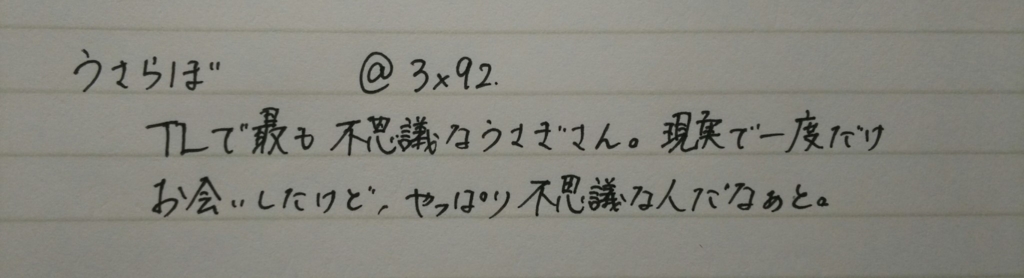 うさらぼ @3x92.
TLで最も不思議なうさぎさん。現実で一度だけ
お会いしたけど、やっぱり不思議な人だなぁと。